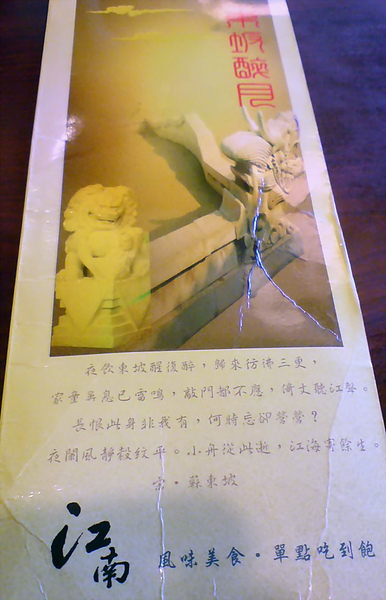 東坡醉月
夜飲東坡醒復醉，歸來彷彿三更，
家童鼻息已雷鳴，敲門都不應，倚丈聽江聲。
長恨此身非我有，何時忘卻營營？
夜闌風靜縠紋平。小舟從此逝，江海寄餘生。
宋·蘇東坡
江南
風味美食·單點吃到飽